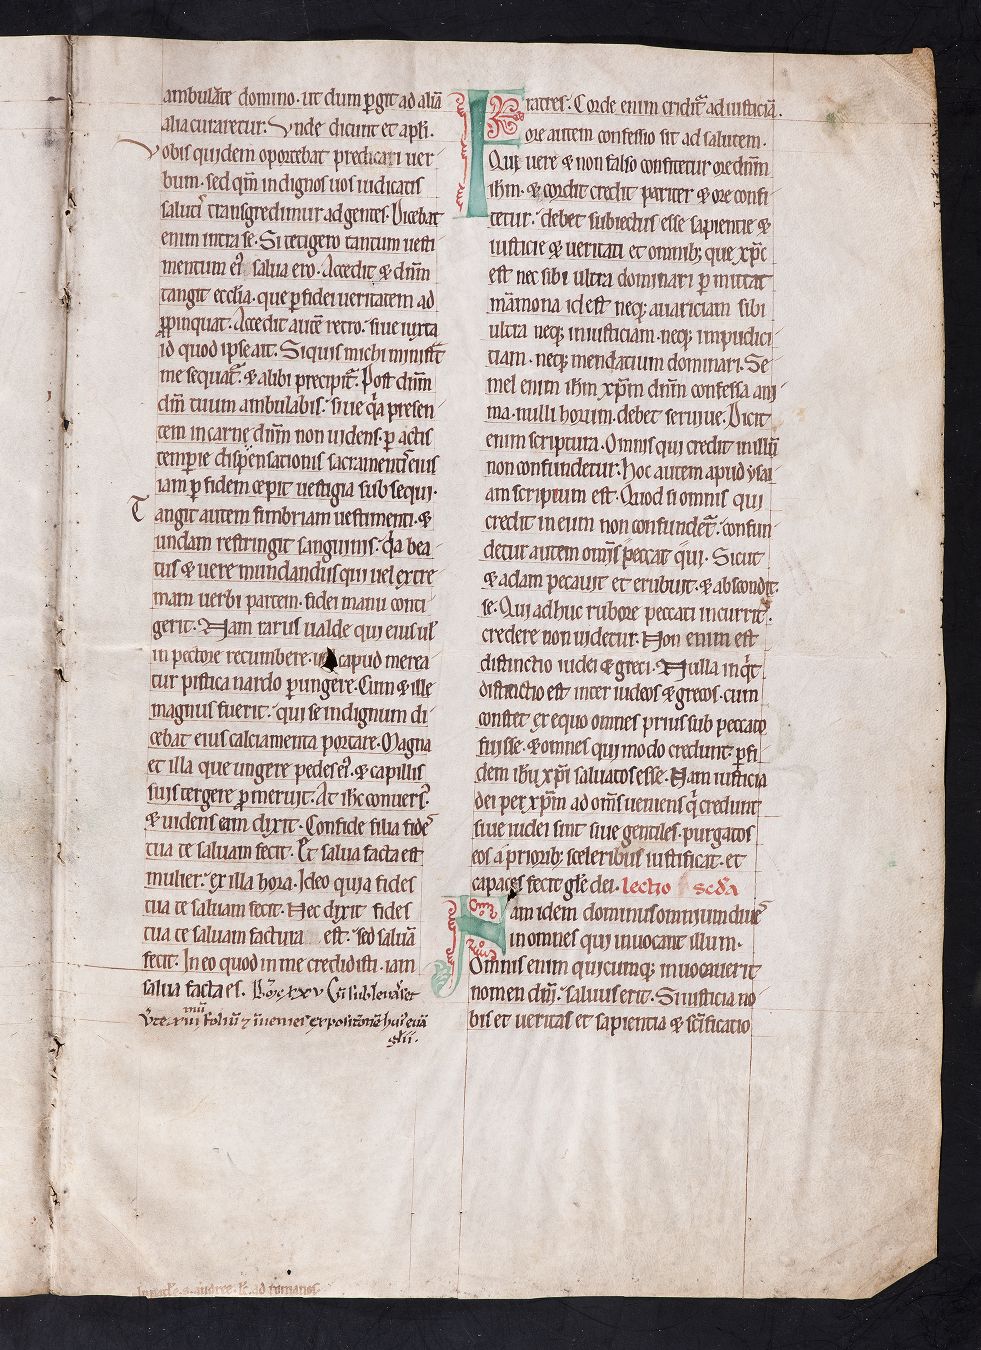 ambulāte domino. ut dum ꝑgit ad aliā
alia curaretur. Vnde dicunt et apłi.
Vobis quidem oportebat predicari uer
bum. sed qm̄ indignos uos iudicatis
saluti transgredimur ad gentes. Dicebat
enim intra se. Si tetigero tantum uesti
mentum ei᷒ salua ero. Accedit & dn̄m
tangit eccl̄ia. que ꝑ fidei ueritatem ad
ꝓpinquat. Accedit autē retro. siue iuxta
id quod ipse ait. Siquis michi ministrat
me sequat᷑. & alibi precipit᷑. Post dn̄m
dm̄ tuum ambulabis. siue q̄a presen
tem in carne dn̄m non uidens. ꝑ actis
temporie dispensationis sacramentis eius
iam ꝑ fidem cepit uestigia subsequi.
Tangit autem fimbriam uestimenti. &
undam restringit sanguinis. q̄a bea
tus & uere mundandus qui uel extre
mam uerbi partem. fidei manu conti
gerit. Nam rarus ualde qui eius uł
in pectore recumbere. capud merea
tur pistica nardo ꝑungere. Cum & ille
magnus fuerit. qui se indignum di
cebat eius calciamenta portare. Magna
et illa que ungere pedes ei᷒. & capillis
suis tergere ꝓmeruit. At ih̄c conuers᷒.
& uidens eam dixit. Confide filia fides
tua te saluam fecit. Et salua facta est
mulier. ex illa hora. Ideo quia fides
tua te saluam fecit. Nec dixit fides
tua te saluam factura est. sed saluā
fecit. In eo quod in me credidisti. iam
salua facta es. Cū subleuasset
foliū expositionē
Fratres. Corde enim credit᷑ ad iusticiā.
Ore autem confessio fit ad salutem.
Que uere & non falso confitetur ore dn̄m
ih̄m. & corde credit pariter & ore confi
tetur. debet subiectus esse sapientie &
iusticie & ueritati et omnib; que xp̄c
est nec sibi ultra dominari ꝑmittat
māmona id est neq; auariciam sibi
ultra neq; iniusticiam. neq; impudici
tiam. neq; mendatium dominari. Se
mel enim ih̄m xp̄m dn̄m confessa ani
ma. nulli horum. debet seruire. Dicit
enim scriptura. Omnis qui credit in illū
non confundetur. Hoc autem apud ysai
am scriptum est. Quod si omnis qui
credit in eum non confundet᷑. confun
detur autem omīs peccat qui. Sicut
& adam pecauit et erubuit. & abscondit
se. Qui adhuc rubore peccati incurrit.
credere non uidetur. Non enim est
distinctio iudei & greci. Nulla inq̄t
distinctio est inter iudeos & grecos. cum
constet ex equo omnes prius sub peccato
fuisse. & omnes qui modo credunt. ꝑ fi
dem ih̄u xp̄i saluatos esse. Nam iusticia
dei per xp̄m ad om̄s ueniens q̄ credunt
siue iudei sint siue gentiles. purgatos
eos a priorib; sceleribus iustificat. et
capaces fecit gl̄e dei. lectio scd̄a
Nam idem dominus omnium diues
in omnes qui inuocant illum.
Omnis enim quicumq; inuocauerit
nomen dn̄i. saluus erit. Si iusticia uo
bis et ueritas et sapientia & sc̄ificatio
andree. ad romanos.